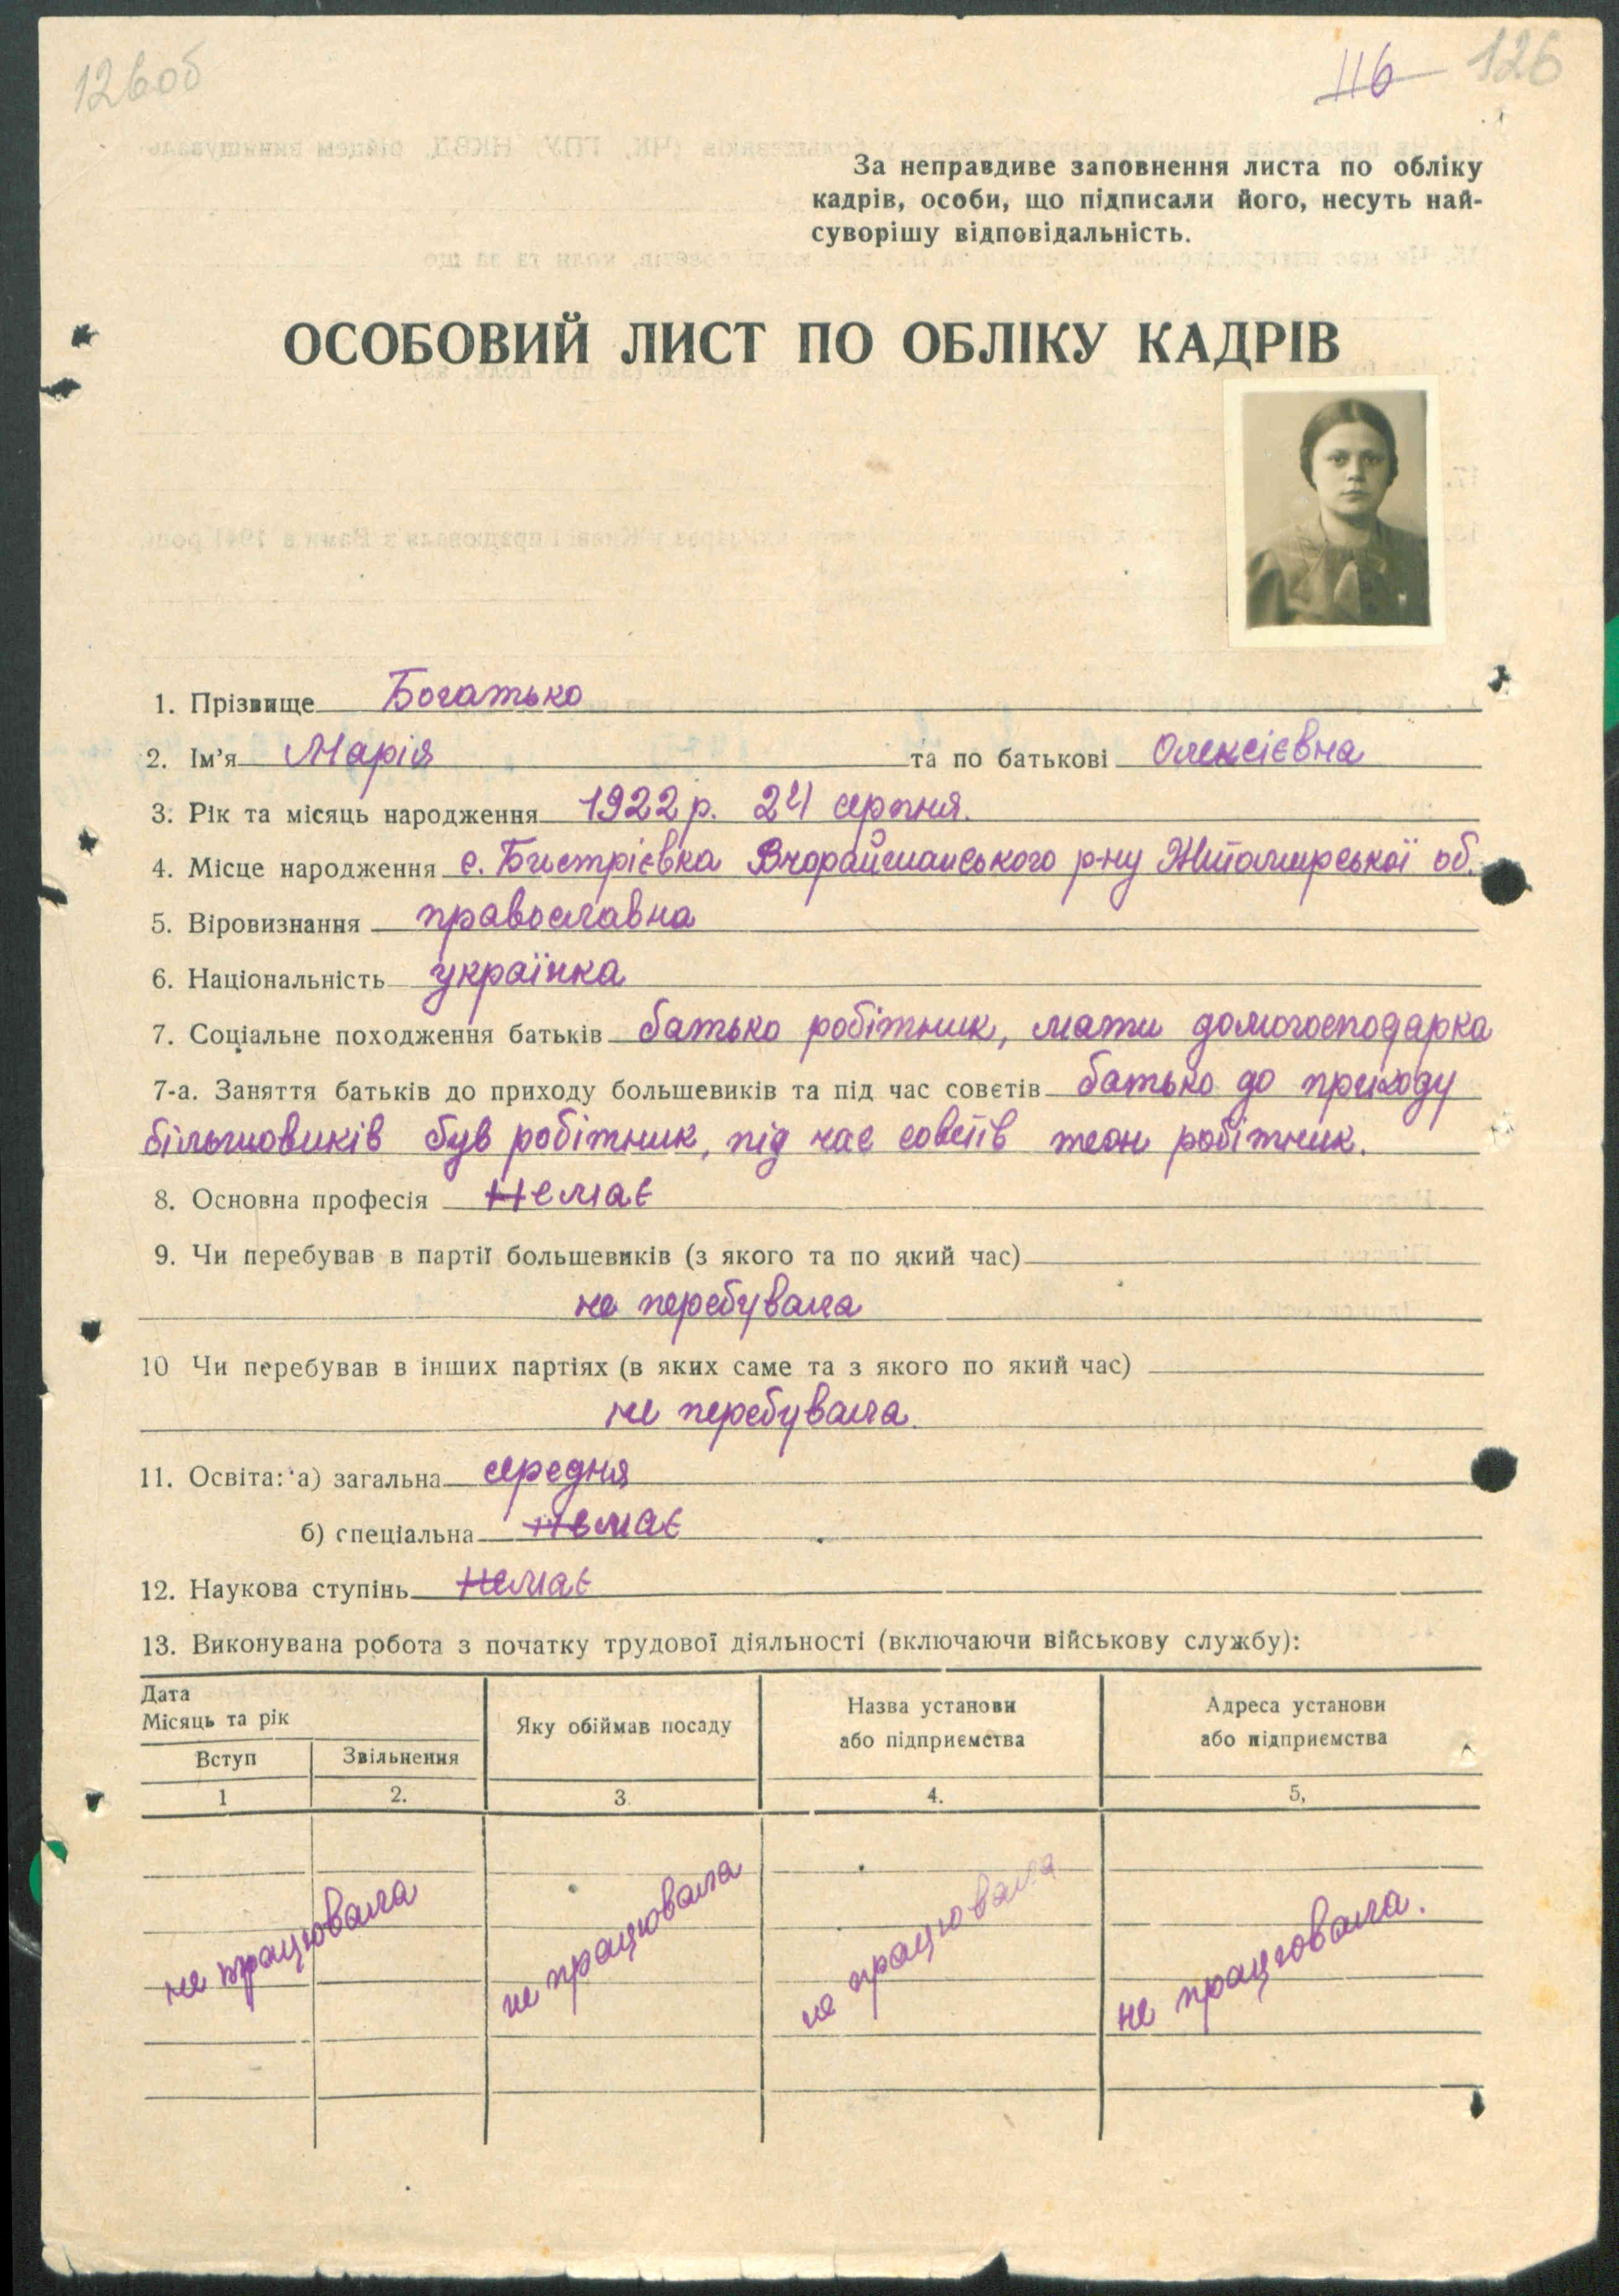 126об
116 126
За неправдиве заповнення листа по обліку
кадрів, особи, що підписали його, несуть най-
суворішу відповідальність.
ОСОБОВИЙ ЛИСТ ПО ОБЛІКУ КАДРІВ
1. Прізвище Богатько
2. Ім'я Марія та по батькові Олексієвна
3. Рік та місяць народження 1922 р. 24 серпня.
4. Місце народження с. Бистрієвка Вчорайшанського р-ну Житомирської об.
5. Віровизнання православна
6. Національність українка
7. Соціальне походження батьків батько робітник, мати домогосподарка
7-а. Заняття батьків до приходу большевиків та під час совєтів батько до приходу
більшовиків був робітник, під час совєтів теж робітник.
8. Основна професія Немає
9. Чи перебував в партії большевиків (з якого та по який час)
не перебувала
10 Чи перебував в інших партіях (в яких саме та з якого по який час)
не перебувала.
11. Освіта: а) загальна середня
б) спеціальна немає
12. Наукова ступінь немає
13. Виконувана робота з початку трудової діяльності (включаючи військову службу):
Дата
Місяць та рік
Вступ
Звільнення
Яку обіймав посаду
Назва установи
або підприємства
Адреса установи
або підприємства
1 2. 3 4. 5,
не працювала
не працювала
не працювала
не працювала.